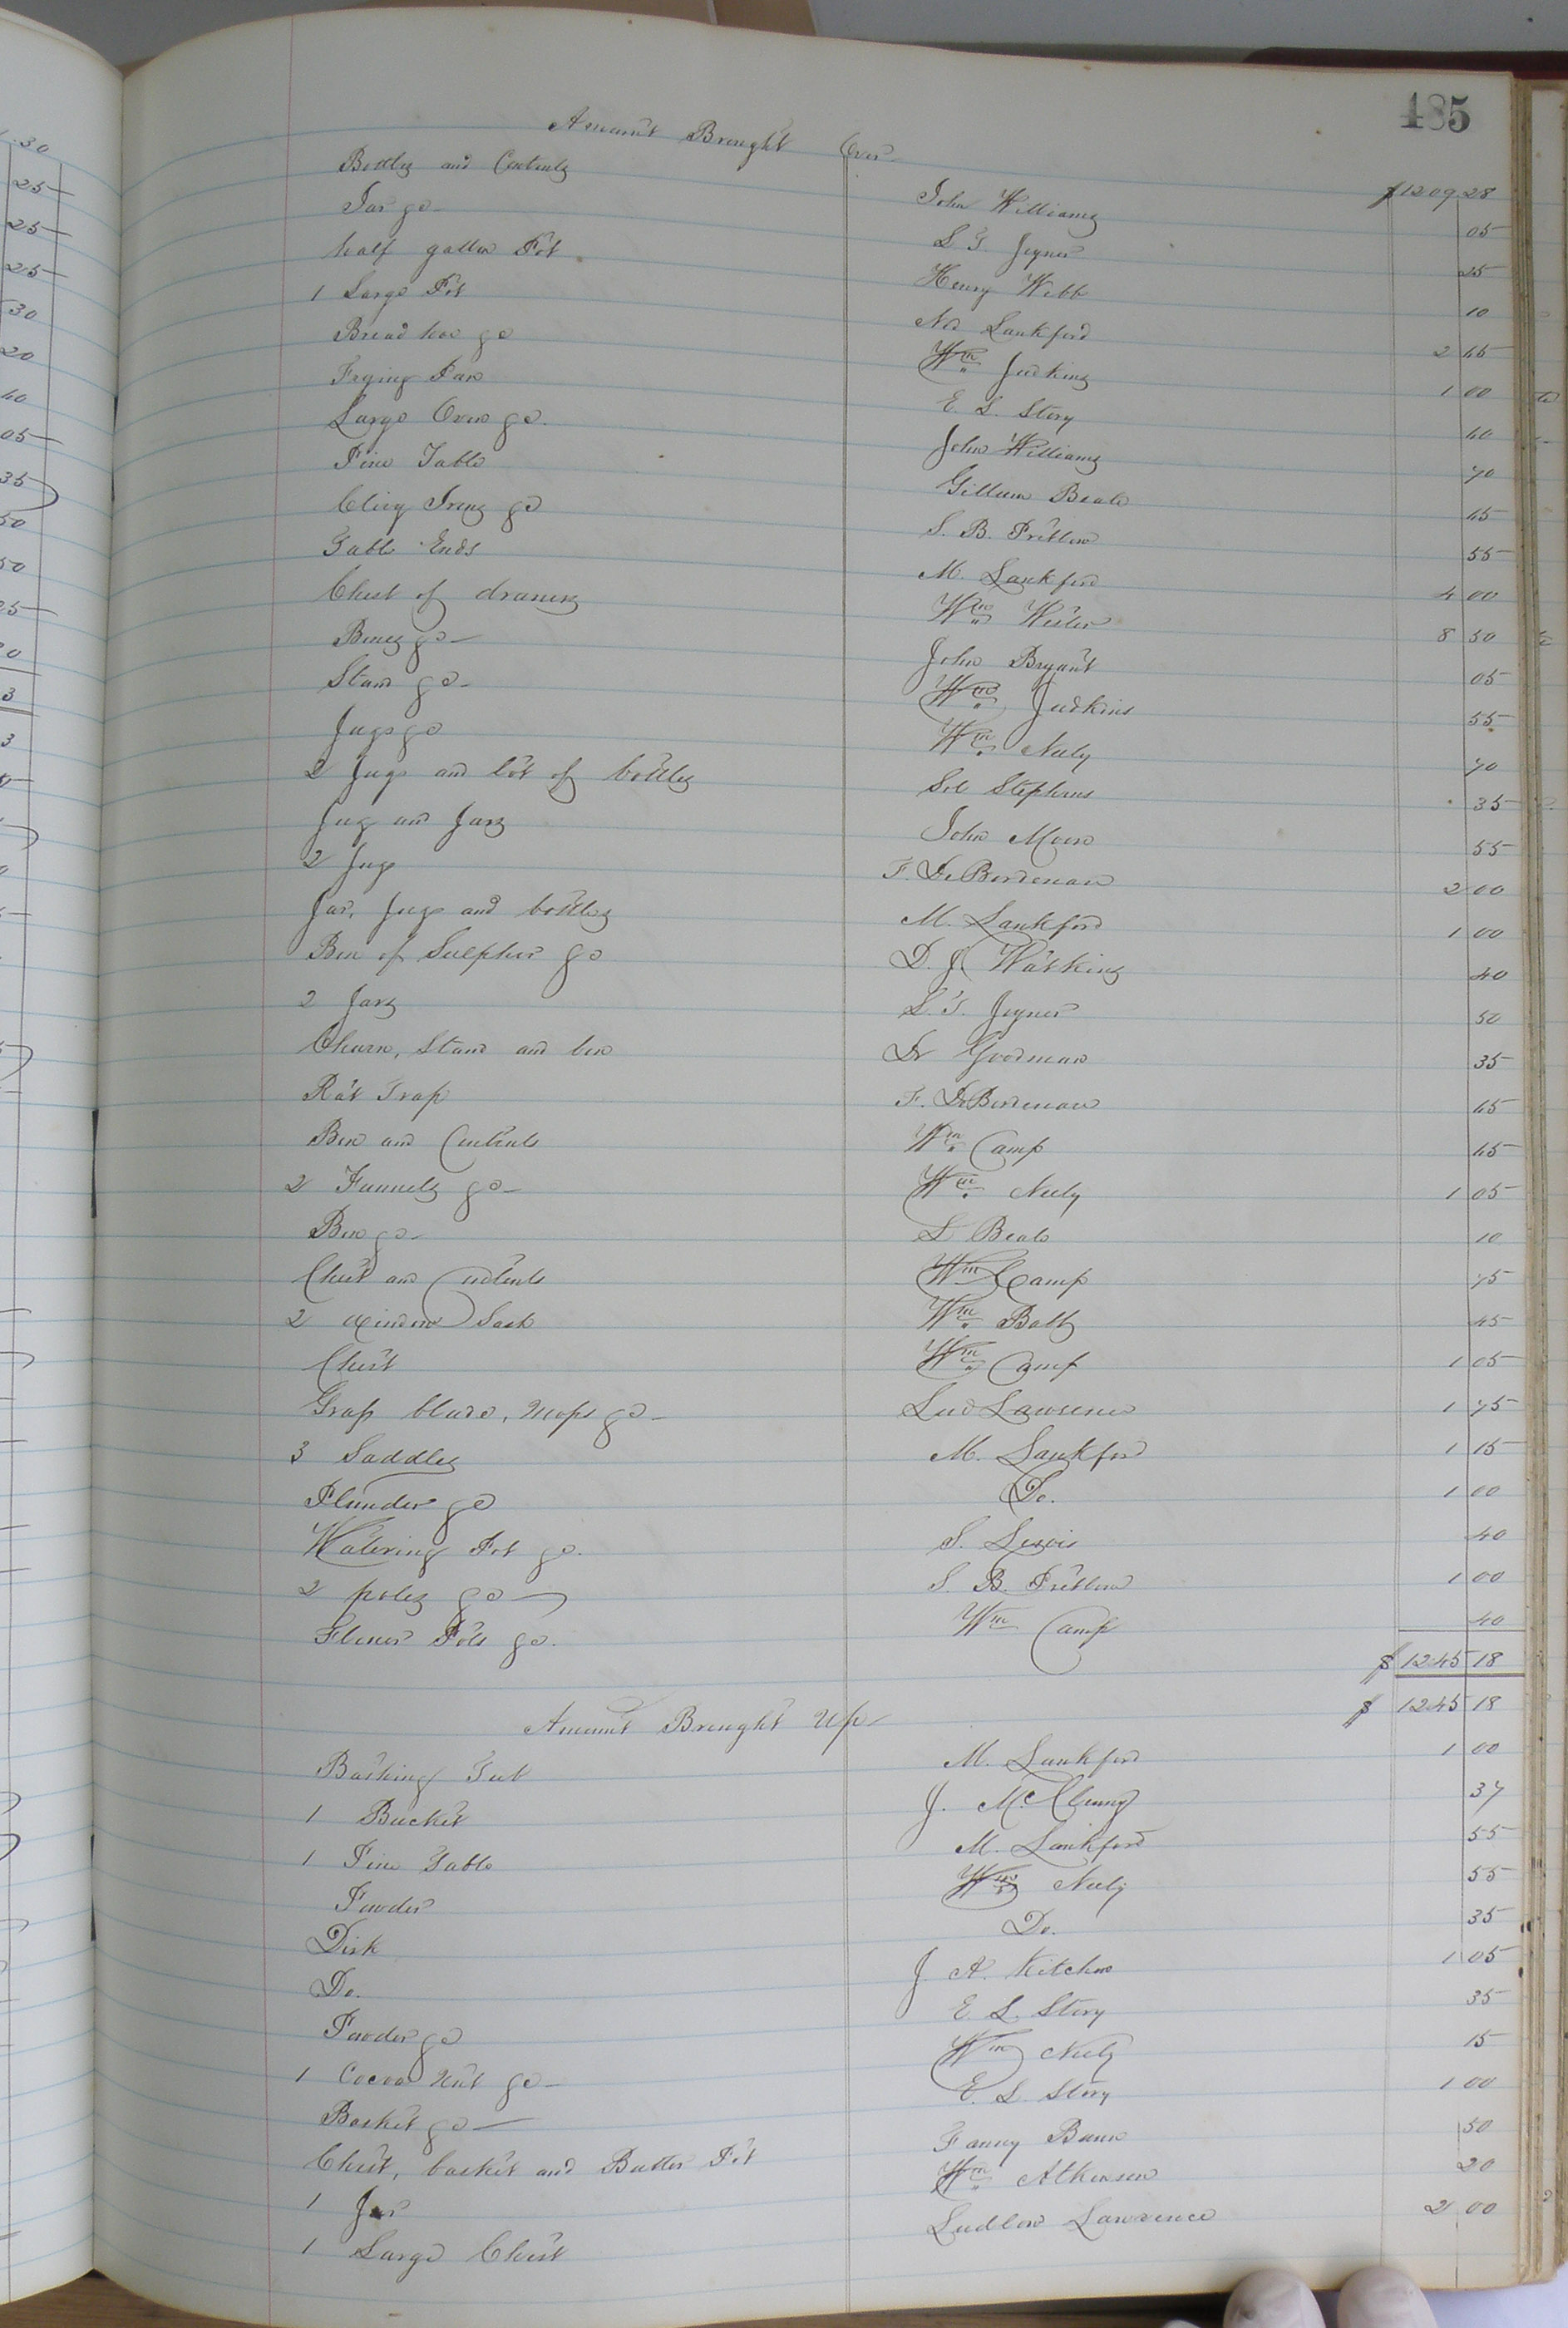 485
Amount Brought Over $1209 28
Bottles and Contents John Williams 05
Jar go L T Joyner 25
half gallon Pot Henry Webb 10
1 Large Pot Lankford 2 45
Bread hoe go Wm Judkins 1 00
Frying Pan E. L. Story 40
Large Oven go. John Williams 70
Pine Table Gillum Beale 45
Irons go S. B. Pretlow 55
Table Ends M. Lankford 4 00
Chest of drawers Wm 8 50
Boxes go John Bryant 05
Stand go Wm Judkins 55
Jugs go Wm Neely 70
2 Jugs and lot of bottles Sol Stephens 35
Jug and Jars John Moore 55
2 Jugs F. DeBordenave 2 00
Jar, Jugs and bottles M. Lankford 1 00
Box of Sulpher go D. J. Watkins 40
2 Jars L. T. Joyner 50
Churn, Stand and box Dr Goodman 35
Rat Trap F. DeBordenave 45
Box and Contents Wm Camp 45
2 Funnels go Wm Neely 1 05
Box go L Beale 10
Chest and Contents Wm Camp 75
2 window Sash Wm Batts 45
Chest Wm Camp 1 05
Grass blade, mops go Lud Lawrence 1 75
3 Saddles M. Lankford 1 15
Plunder go Do. 1 00
Watering Pot go. S. Lewis 40
2 poles go S. B. Pretlow 1 00
Flower Pots go. Wm Camp 40
$ 1245 18
Amount Brought Up $ 1245 18
Bathing Tub M. Lankford 1 00
1 Bucket J. McClenny 37
1 Pine Table M. Lankford 55
Powder Wm Neely 55
Dirk Do. 35
Do. J. A. Kitchen 1 05
Powder go E. L. Story 35
1 Cocoa Nut go Wm Neely 15
Basket go E. L. Story 1 00
Chest, basket and Butter Pot Fanny Bunn 50
1 Jar Wm Atkinson 20
1 Large Chest Ludlow Lawrence 2 00